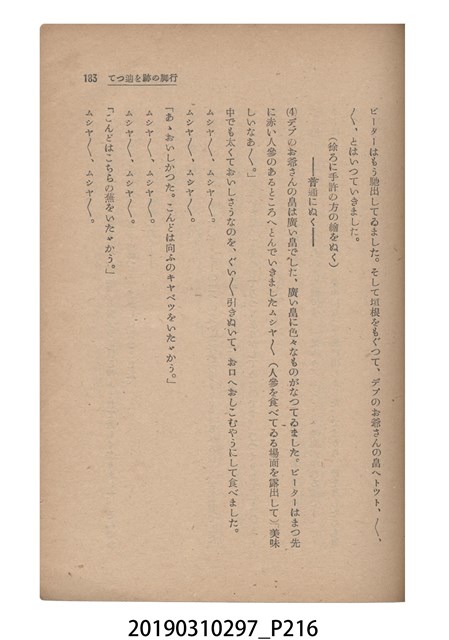 行脚の跡を辿つて 183
ピーターはもう馳出してゐました。そして垣根をもぐつて、デブのお爺さんの畠へトツト、〳〵、
〳〵、とはいつていきました。
（徐ろに手許の方の繪をぬく）
――普通にぬく――
(4) デブのお爺さんの畠は廣い畠でした、廣い畠に色々なものがなつてゐました。ピーターはまつ先
に赤い人參のあるところへとんでいきましたムシヤ〳〵（人參を食べてゐる場面を露出して）美味
しいなあ〳〵。」
中でも太くておいしさうなのを、ぐい〳〵引きぬいて、お口へおしこむやうにして食べました。
ムシヤ〳〵、ムシヤ〳〵。
ムシヤ〳〵、ムシヤ〳〵。
『あゝおいしかつた。こんどは向ふのキヤベツをいたゞかう。』
ムシヤ〳〵、ムシヤ〳〵。
ムシヤ〳〵、ムシヤ〳〵。
『こんどはこちらの蕪をいたゞかう。』
ムシヤ〳〵、ムシヤ〳〵。
20190310297_P216